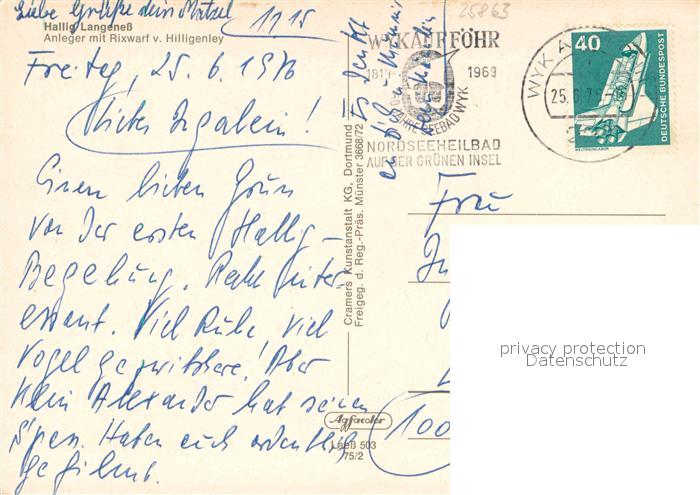 Liebe Grüße dein Matzel
Hallig Langeneß
Anleger mit Rixwarf v. Hilligenley
11 15
Freitag, 25. 6. 1976
Liebes Ingalein!
Einen lieben Gruß
von der ersten Hallig-
Begehung. Recht inter-
essant. Viel Ruhe, viel
Vogelgezwitschere! Aber
kein Alexander hat seinen
Spass. Haben auch ordentlich
gefilmt.
Es denkt
an dich
Cramers Kunstanstalt KG, Dortmund
Freigeg. d. Reg.-Präs. Münster 3668/72
Agfacolor
LgnB 503
75/2
25863
WYK AUF FÖHR
1819 1969
SEEBAD WYK
NORDSEEHEILBAD
AUF DER GRÜNEN INSEL
WYK A
25. 6. 76
2
40
DEUTSCHE BUNDESPOST
WELTRAUMLABOR
Frau
100
privacy protection
Datenschutz